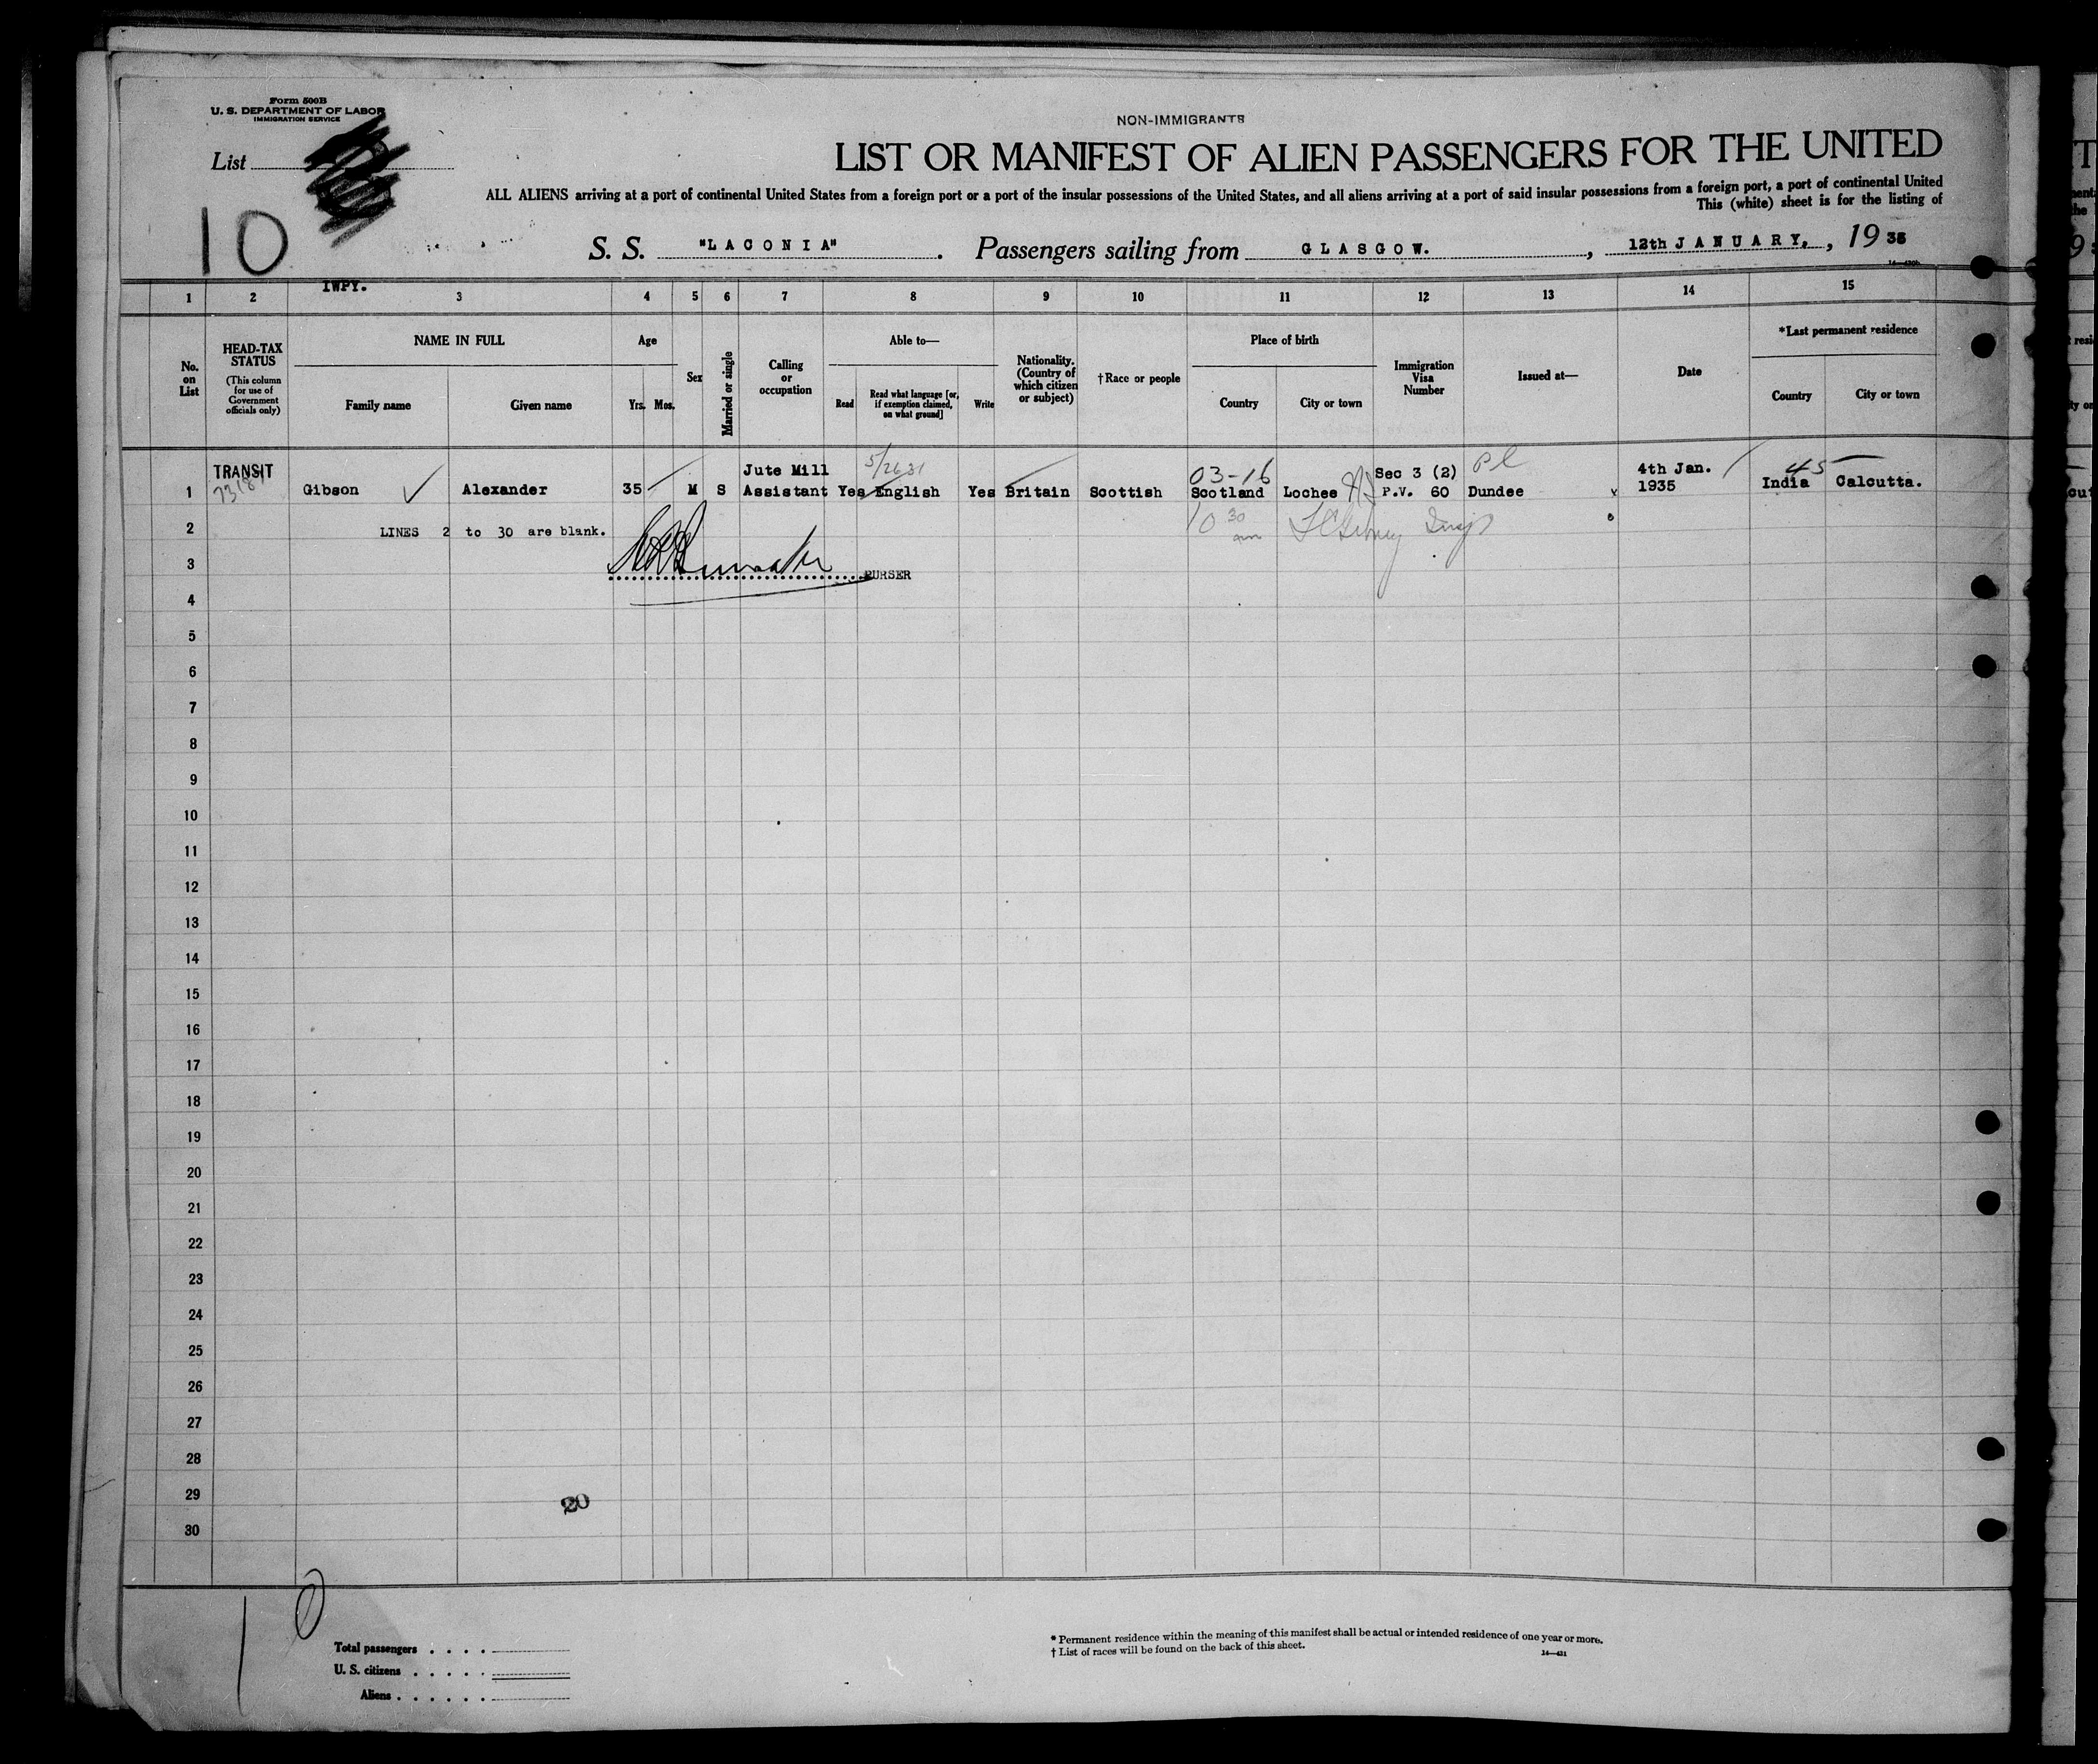 Form 500B
U. S. DEPARTMENT OF LABOR
IMMIGRATION SERVICE
List
10
NON-IMMIGRANTS
LIST OR MANIFEST OF ALIEN PASSENGERS FOR THE UNITED
ALL ALIENS arriving at a port of continental United States from a foreign port or a port of the insular possessions of the United States, and all aliens arriving at a port of said insular possessions from a foreign port, a port of continental United
This (white) sheet is for the listing of
S. S. "LACONIA". Passengers sailing from GLASGOW., 12th JANUARY, , 1935
IWPY.
1 2 3 4 5 6 7 8 9 10 11 12 13 14 15
No. on List
HEAD-TAX STATUS (This column for use of Government officials only)
NAME IN FULL
Family name Given name
Age
Yrs. Mos.
Sex
Married or single
Calling or occupation
Able to—
Read
Read what language [or, if exemption claimed, on what ground]
Write
Nationality. (Country of which citizen or subject)
†Race or people
Place of birth
Country City or town
Immigration Visa Number
Issued at—
Date
*Last permanent residence
Country City or town
TRANSIT Jute Mill 5/26 31 03-16 Sec 3 (2) Pl 4th Jan. 45
1 Gibson Alexander 35 M S Assistant Yes English Yes Britain Scottish Scotland Lochee P.V. 60 Dundee 1935 India Calcutta.
2 LINES 2 to 30 are blank. 10 30 am Insp
3 PURSER
4
5
6
7
8
9
10
11
12
13
14
15
16
17
18
19
20
21
22
23
24
25
26
27
28
29
20
30
10
Total passengers . . . .
U. S. citizens . . . . .
Aliens . . . . . .
* Permanent residence within the meaning of this manifest shall be actual or intended residence of one year or more.
† List of races will be found on the back of this sheet.
14—431